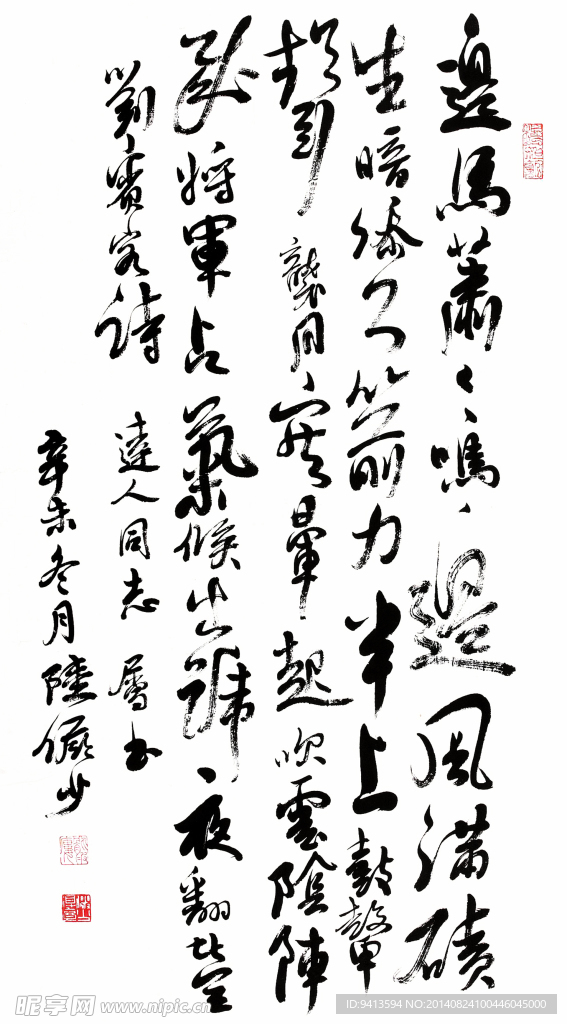 邊馬蕭々鳴邊風滿磧
生暗添弓箭力半上鼓鼙
聲襲月寒暈起吹雲陰陣
成將軍占氣候出號夜翻營
劉賓客詩
達人同志屬書
辛未冬月陸儼少
昵享网 www.nipic.cn
ID:9413594 NO:20140824100446045000